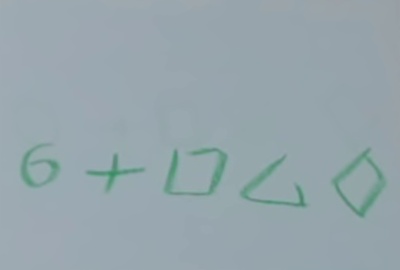 6 + □ < ◇